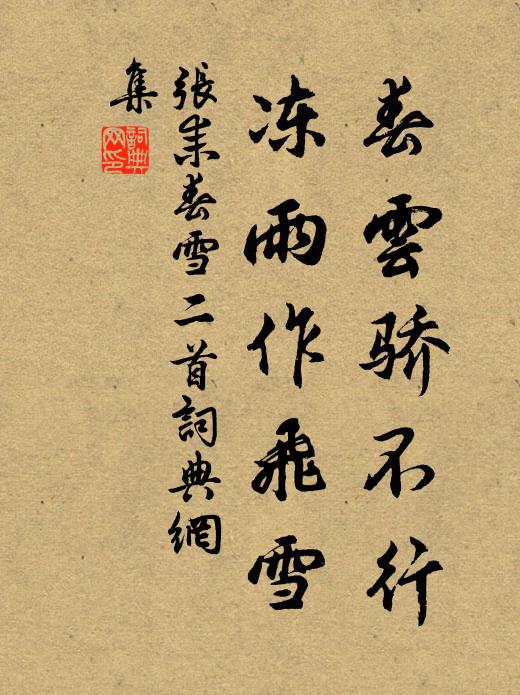 春雲骄不行
冻雨作飛雪
張耒春雪二首詞典網
集
詞典
网印